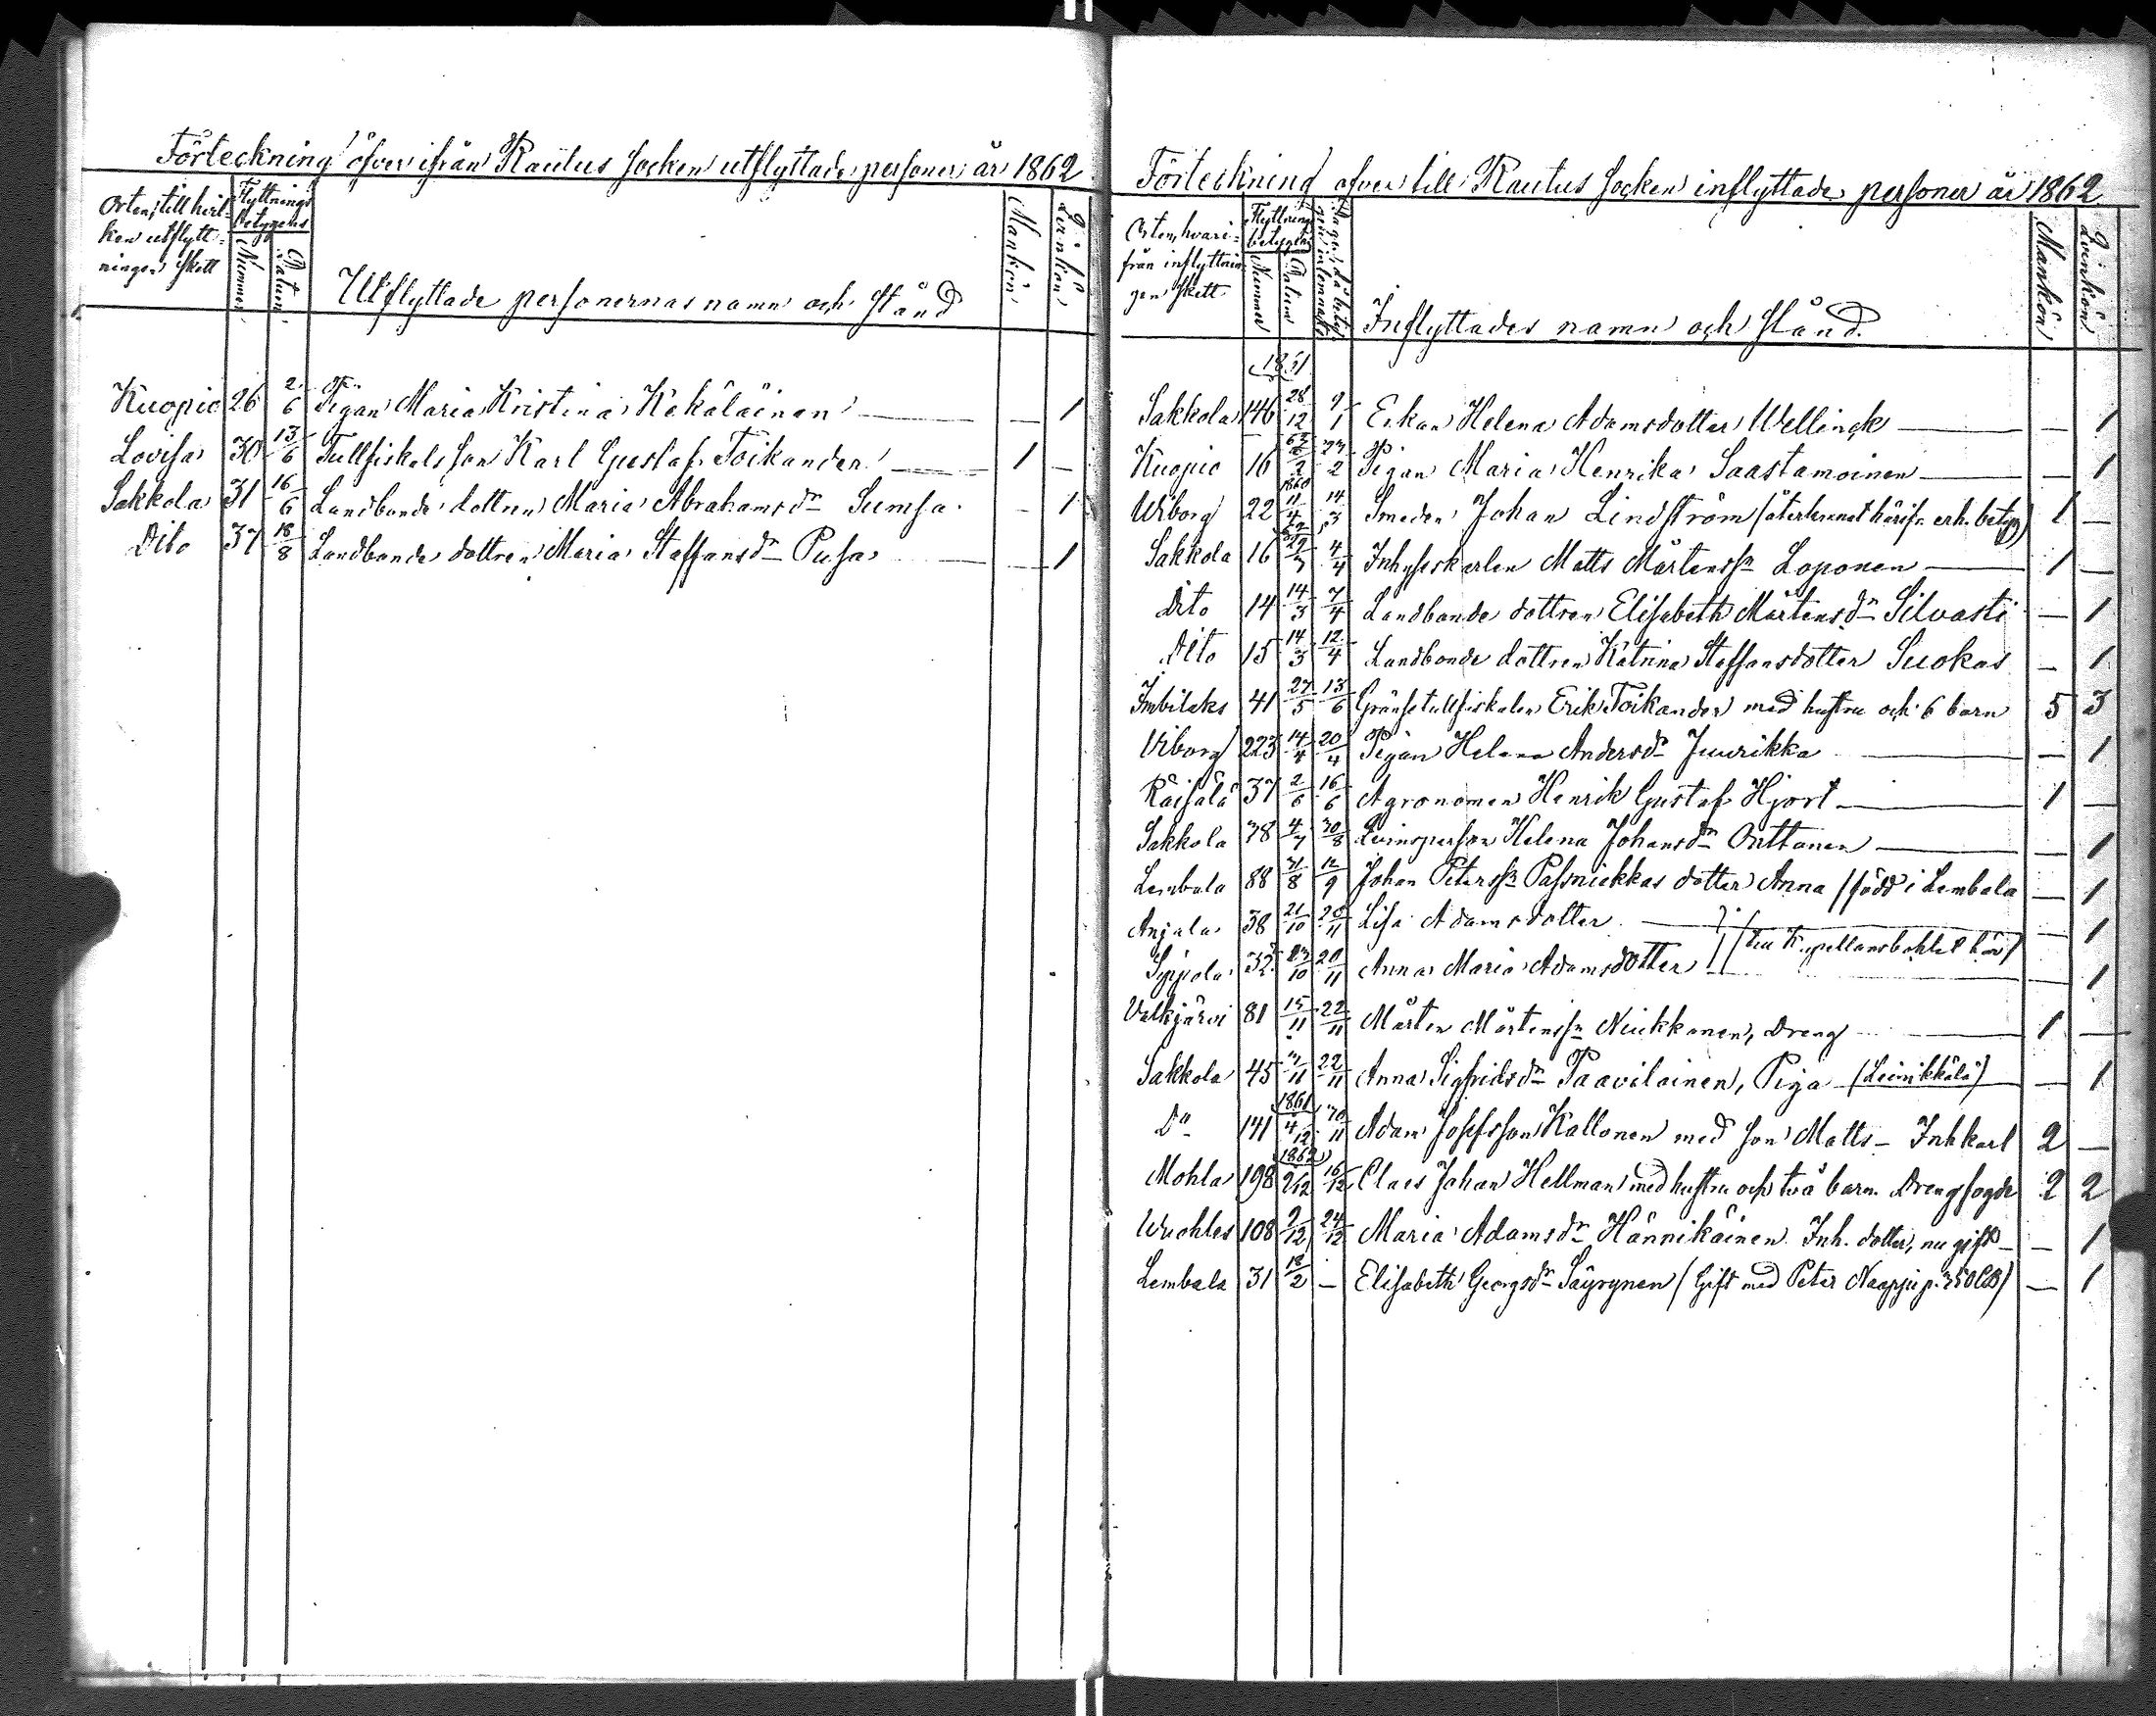 Förteckning öfver ifrån Rautus Socken utflyttade personer år 1862
Orten, till hvilken utflyttningen skett | Flyttnings betygens Nummer | Datum | Utflyttade personernas namn och stånd | Mankön | Qvinkön
Kuopio 26 2/6 Pigan Maria Kristina Kekäläinen — — 1
Lovisa 30 13/6 Tullfiskals son Karl Gustaf Toikander — 1 —
Sakkola 31 16/6 Landbonde dottren Maria Abrahamsdr Sumsa — 1
Dito 37 18/8 Landbonde dottren Maria Staffansdr Pusa — — 1
Förteckning öfver till Rautus Socken inflyttade personer år 1862
Orten, hvarifrån inflyttningen skett | Flyttnings betygens Nummer | Datum | Inflyttades namn och stånd. | Mankön | Qvinkön
1861
Sakkola 146 28/12 9/1 Enkan Helena Adamsdotter Wellinck — — 1
Kuopio 16 /2 Pigan Maria Henrika Saastamoinen — — 1
1860
Wiborg 22 11/4 14/3 Smeden Johan Lindström (återlemnat härifr. erh. betyg) 1 —
Sakkola 16 4/4 Inhyseskarlen Matts Mårtenssn Loponen — 1 —
Dito 14 14/3 7/4 Landbonde dottren Elisabeth Mårtensdr Silvasti — 1
Dito 15 14/3 12/4 Landbonde dottren Katrina Staffansdotter Suokas — 1
Imbilaks 41 27/5 13/6 Gränsetullfiskalen Erik Toikander med hustru och 6 barn 5 3
Viborg 223 14/4 20/4 Pigan Helena Andersdr Juurikka — — 1
Räisälä 37 2/6 16/6 Agronomen Henrik Gustaf Hjort — 1 —
Sakkola 38 4/7 30/8 Qvinsperson Helena Johansdr Onttonen — — 1
Lembala 88 31/8 12/9 Johan Peterssn Passnickkas dotter Anna (född i Lembala — 1
Anjala 38 21/10 20/11 Lisa Adamsdotter — — 1
(till Kapellansbohlet här)
Sippola 32 23/10 20/11 Anna Maria Adamsdotter — 1
Valkjärvi 81 15/11 22/11 Mårten Mårtenssn Niukkanen, Dreng — 1 —
Sakkola 45 /11 22/11 Anna Sigfridsdr Paavilainen, Piga (Leinikkälä) — 1
1861
Do 141 4/12 30/11 Adam Josefsson Kallonen med son Matts — Inhkarl 2 —
1862
Mohla 198 9/12 16/12 Claes Johan Hellman med hustru och två barn. Drengfogde 2 2
Wuoles 108 9/12 24/12 Maria Adamsdr Hännikäinen Inh. dotter, nu gift — — 1
Lembala 31 18/2 — Elisabeth Georgsdr Säyrynen (Gift med Peter Naappi p. 350 CB) — 1